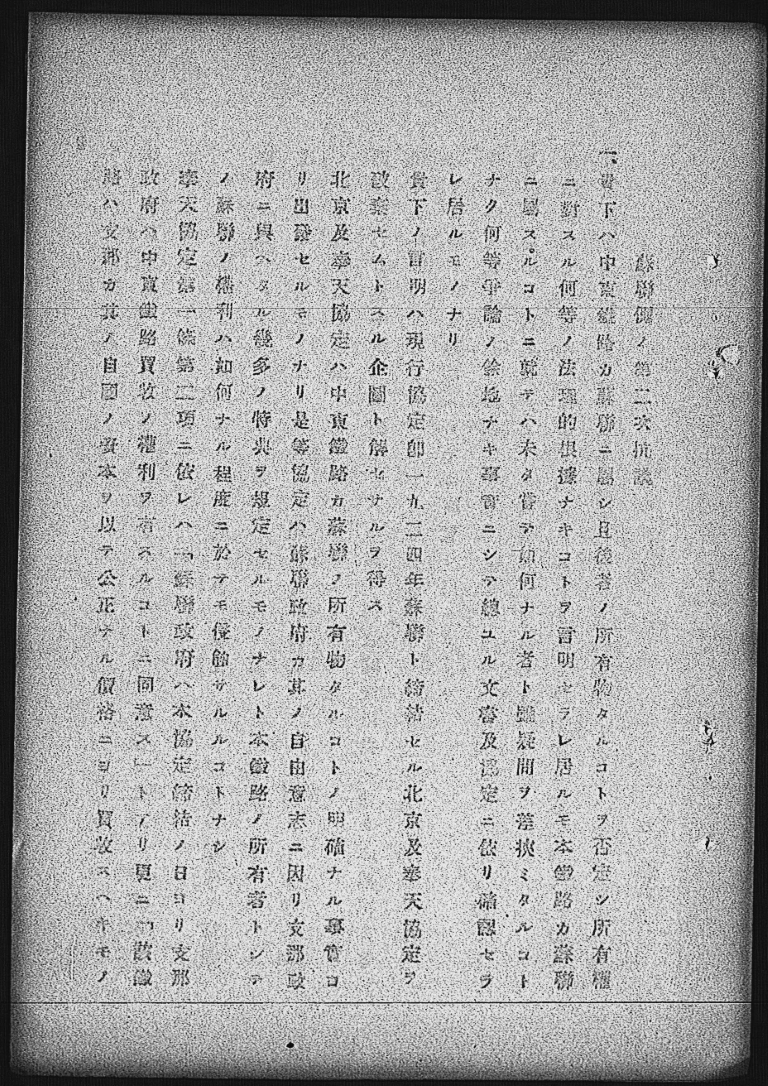 蘇聯側ノ第二次抗議
一、貴下ハ中東鐵路カ蘇聯ニ屬シ且後者ノ所有物タルコトヲ否定シ所有權
ニ對スル何等ノ法理的根據ナキコトヲ言明セラレ居ルモ本鐵路カ蘇聯
ニ屬スルコトニ就テハ未タ嘗テ如何ナル者ト雖疑問ヲ差挾ミタルコト
ナク何等爭論ノ餘地ナキ事實ニシテ總ユル文書及協定ニ依リ確認セラ
レ居ルモノナリ
貴下ノ言明ハ現行協定卽一九二四年蘇聯ト締結セル北京及奉天協定ヲ
破棄セムトスル企圖ト解セサルヲ得ス
北京及奉天協定ハ中東鐵路カ蘇聯ノ所有物タルコトノ明確ナル事實ヨ
リ出發セルモノナリ是等協定ハ蘇聯政府カ其ノ自由意志ニ因リ支那政
府ニ與ヘタル幾多ノ特典ヲ規定セルモノナレト本鐵路ノ所有者トシテ
ノ蘇聯ノ權利ハ如何ナル程度ニ於テモ侵蝕サルルコトナシ
奉天協定第一條第二項ニ依レハ「蘇聯政府ハ本協定締結ノ日ヨリ支那
政府ハ中東鐵路買收ノ權利ヲ有スルコトニ同意ス」トアリ更ニ「該鐵
路ハ支那カ其ノ自國ノ資本ヲ以テ公正ナル價格ニヨリ買收スヘキモノ